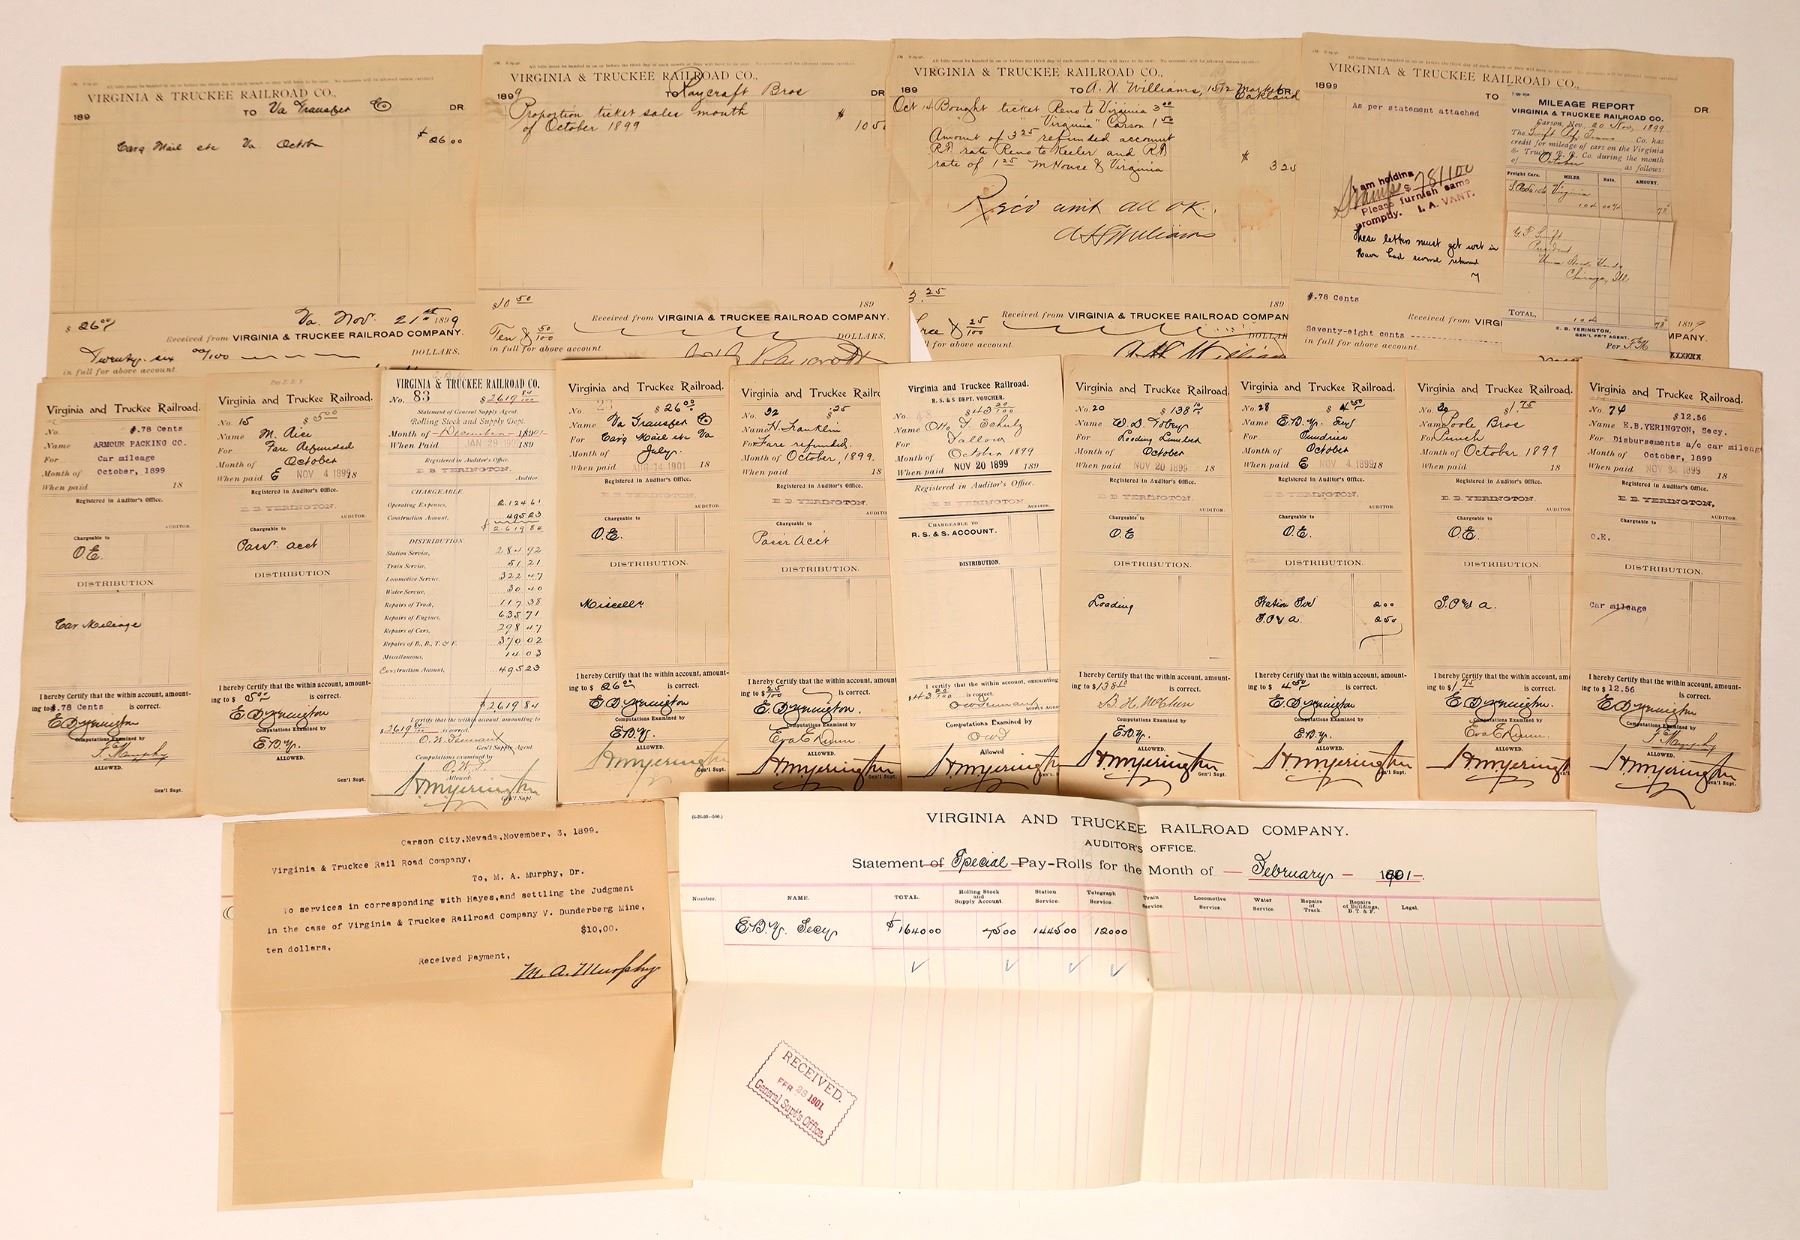 VIRGINIA & TRUCKEE RAILROAD CO.,
189
TO Va Transfer Co DR.
Carg Mail etc Va. October $26 00
Va. Nov. 21st 1899
$ 26 00
Received from VIRGINIA & TRUCKEE RAILROAD COMPANY.
Twenty six 00/100 DOLLARS.
in full for above account.
VIRGINIA & TRUCKEE RAILROAD CO.,
1899
TO Raycraft Bros DR
Proportion ticket sales month
of October 1899
$ 10 50
$10 50
189
Received from VIRGINIA & TRUCKEE RAILROAD COMPANY.
Ten & 50/100 DOLLARS.
in full for above account.
VIRGINIA & TRUCKEE RAILROAD CO.,
189
TO A. H. Williams, 1512 Market
Oakland
Oct 14 Bought ticket Reno to Virginia 3 00
" " Virginia " Carson 1 50
Amount of 3 25 refunded account
RR rate Reno to Keeler and RR
rate of 1 25 M House & Virginia
$ 3 25
Rec'd amt all OK.
A H Williams
3. 25
189
Received from VIRGINIA & TRUCKEE RAILROAD COMPAN
& 25/100
full for above account.
A. H. William
VIRGINIA & TRUCKEE RAILROAD CO.,
1899
TO DR.
As per statement attached
I am holding
Stamps $ 781100
Please furnish same
promptly. I. A. VANT.
These letters must get out in
$.78 Cents
Received from VIRGI
Seventy-eight cents
in full for above account.
MILEAGE REPORT
VIRGINIA & TRUCKEE RAILROAD CO.
Carson, Nev., 20 Nov, 1899
The Swift Ref Trans Co. has
credit for mileage of cars on the Virginia
& Truckee R. R. Co. during the month
of October as follows:
Freight Cars. MILES. Rate. AMOUNT.
Virginia
104 78
G. F. Swift
President
Union Stock Yards
Chicago, Ill
TOTAL, 104 78
E. B. YERINGTON,
GEN'L FR'T AGENT.
Per F. M.
1899
MPANY.
XXXXXX
Virginia and Truckee Railroad.
No. $.78 Cents
Name ARMOUR PACKING CO.
For Car mileage
Month of October, 1899
When paid 18
Registered in Auditor's Office.
AUDITOR.
Chargeable to
O.E.
DISTRIBUTION
Car Mileage
I hereby Certify that the within account, amount-
ing to $.78 Cents is correct.
E B Yerington
Computations Examined by
F. Murphy
ALLOWED.
Gen'l Supt.
Virginia and Truckee Railroad.
No. 15 $5 00
Name M. Rice
For Fare Refunded
Month of October
When paid E NOV 4 1899 18
Registered in Auditor's Office.
E. B. YERINGTON.
AUDITOR.
Chargeable to
Pass. acct
DISTRIBUTION.
I hereby Certify that the within account, amount-
ing to $ 5 00 is correct.
E. B. Yerington
Computations Examined by
E.B.Y.
ALLOWED.
Gen'l Supt.
VIRGINIA & TRUCKEE RAILROAD CO.
No. 83 $ 2619 84/100
Statement of General Supply Agent
Rolling Stock and Supply Dept.
Month of December 1900
When Paid JAN 29 190
Registered in Auditor's Office.
E. B. YERINGTON.
Auditor
CHARGEABLE.
Operating Expenses, 2124 61
Construction Account, 495 23
$ 2619 84
DISTRIBUTION.
Station Service, 284 92
Train Service, 51 21
Locomotive Service, 322 47
Water Service, 30 40
Repairs of Track, 117 38
Repairs of Engines, 635 71
Repairs of Cars, 298 47
Repairs of B., B., T. & F. 370 02
Miscellaneous, 14 03
Construction Account, 495 23
$2619 84
I certify that the within account amounting to
$ 2619 84 is correct.
Gen'l Supply Agent
Computations examined by
O. W. T.
Allowed:
H M Yerington
Gen'l Supt.
Virginia and Truckee Railroad.
No 23 $ 26 00
Name Va Transfer Co
For Carg Mail etc Va
Month of July.
When paid AUG 14 1901 18
Registered in Auditor's Office.
E. B. YERINGTON.
AUDITOR.
Chargeable to
O.E.
DISTRIBUTION.
Miscella
I hereby Certify that the within account, amount-
ing to $ 26 00 is correct.
E B Yerington
Computations Examined by
E.B.Y.
ALLOWED.
H M Yerington
Gen'l Supt.
Virginia and Truckee Railroad.
No. 32 $ .25
Name H. Franklin
For Fare refunded.
Month of October, 1899.
When paid 18
Registered in Auditor's Office.
E. B. YERINGTON.
AUDITOR
Chargeable to
Passr Acct
DISTRIBUTION.
I hereby Certify that the within account, amount-
ing to $ 25/100 is correct.
E. B. Yerington.
Computations Examined by
ALLOWED.
H M Yerington
Virginia and Truckee Railroad.
R. S. & S. DEPT. VOUCHER.
No. 48 $ 43 20/100
Name Otto F. Schulz
For Tallow
Month of October 1899
When paid NOV 20 1899 189
Registered in Auditor's Office.
E. B. YERINGTON.
Auditor.
CHARGEABLE TO
R. S. & S. ACCOUNT.
DISTRIBUTION.
I certify that the within account, amounting
$ 43 20/100 is correct.
Computations Examined by
OWT
Allowed
H M Yerington
Virginia and Truckee Railroad.
No. 20 $ 138 10
Name W. D. Tobey
For Loading Lumber
Month of October
When paid NOV 20 1899 18
Registered in Auditor's Office.
E. B. YERINGTON.
AUDITOR.
Chargeable to
O.E
DISTRIBUTION.
Loading
I hereby Certify that the within account, amount-
ing to $ 138 10 is correct.
Computations Examined by
E.B.Y.
ALLOWED.
H M Yerington
Virginia and Truckee Railroad.
No. 28 $ 4 50
Name E.B.Y. Secy
For Sundries
Month of October
When paid E NOV 4 1899 18
Registered in Auditor's Office.
E. B. YERINGTON.
AUDITOR.
Chargeable to
O.E.
DISTRIBUTION.
Station Ser 2.00
S.O & a. 2 50
I hereby Certify that the within account, amount-
ing to $ 4 50 is correct.
E B Yerington
Computations Examined by
E.B.Y.
ALLOWED.
H M Yerington
Virginia and Truckee Railroad.
$ 1.75
Name Poole Bros
For Punch
Month of October 1899
When paid 18
Registered in Auditor's Office.
E. B. YERINGTON.
AUDITOR.
Chargeable to
O.E.
DISTRIBUTION.
S.O & a.
I hereby Certify that the within account, amount-
ing to $ 1 75 is correct.
E. B. Yerington.
Computations Examined by
ALLOWED.
H M Yerington
Virginia and Truckee Railroad.
No. 74 $12.56
Name E.B.YERINGTON, Secy.
For Disbursements a/c car mileage
Month of October, 1899
When paid NOV 24 1899 18
Registered in Auditor's Office.
E. B. YERINGTON,
AUDITOR.
Chargeable to
O.E.
DISTRIBUTION.
Car mileage
I hereby Certify that the within account, amount-
ing to $ 12.56 is correct.
E B Yerington
Computations Examined by
F. Murphy
ALLOWED.
H M Yerington
Gen'l Supt.
Carson City, Nevada, November, 3, 1899.
Virginia & Truckee Rail Road Company,
To, M. A. Murphy, Dr.
To services in corresponding with Hayes, and settling the Judgment
in the case of Virginia & Truckee Railroad Company V. Dunderberg Mine,
ten dollars, $10,00.
Received Payment,
M. A. Murphy
VIRGINIA AND TRUCKEE RAILROAD COMPANY.
AUDITOR'S OFFICE.
Statement of Special Pay-Rolls for the Month of February 1901
Number. NAME. TOTAL. Rolling Stock and Supply Account. Station Service. Telegraph Service. Train Service. Locomotive Service. Water Service. Repairs of Track. Repairs of Buildings, B. T. & F. Legal.
E.B.Y. Secy $1640 00 75 00 1445 00 120 00
RECEIVED.
FEB 28 1901
General Supt's Office.